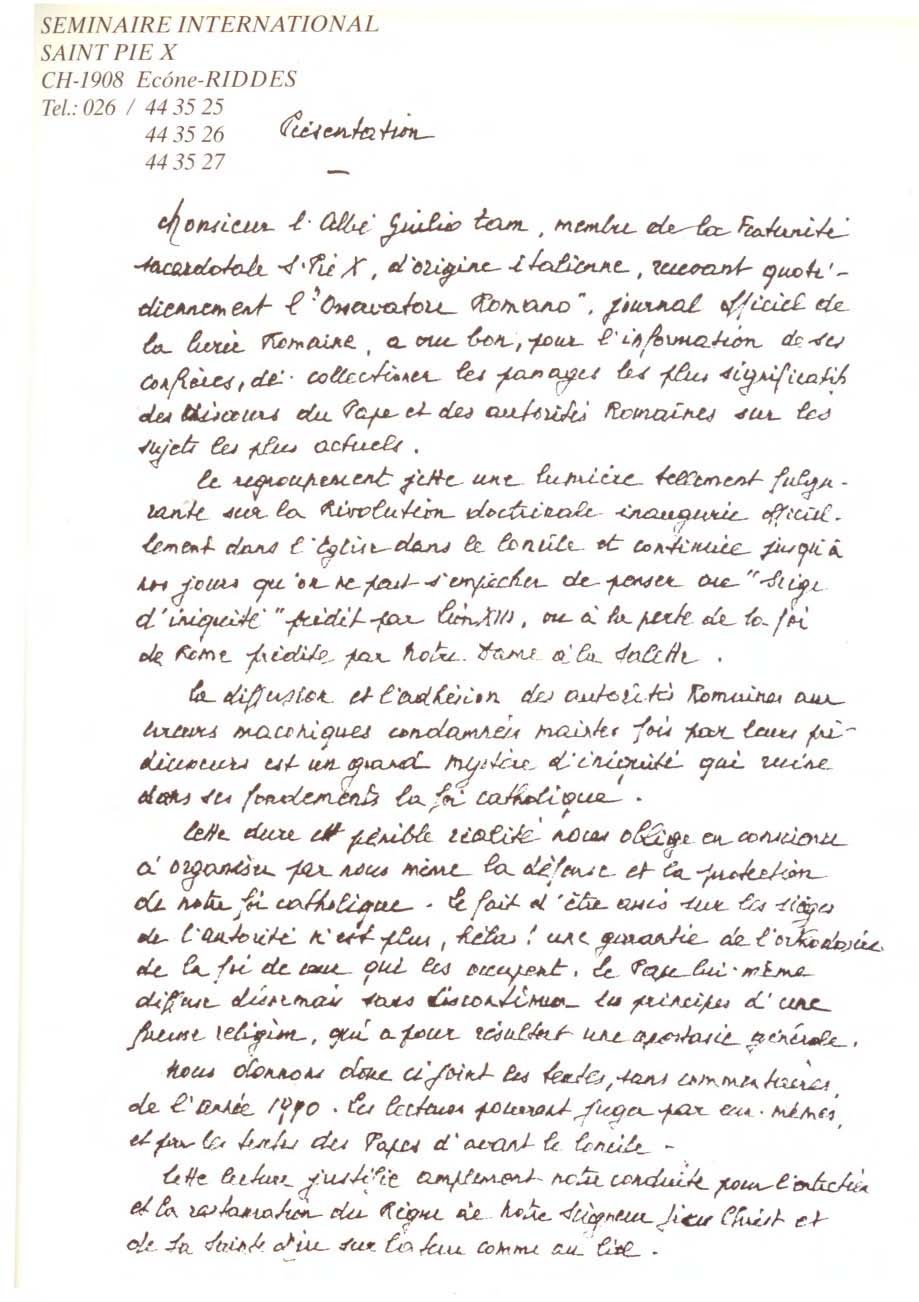 SEMINAIRE INTERNATIONAL
SAINT PIE X
CH-1908 Ecóne-RIDDES
Tel.: 026 / 44 35 25
44 35 26
44 35 27
Présentation
Monsieur l'Abbé Giulio Tam, membre de la Fraternité
sacerdotale S. Pie X, d'origine italienne, recevant quoti-
diennement l'"Osservatore Romano", journal officiel de
la Curie Romaine, a cru bon, pour l'information de ses
confrères, de collectionner les passages les plus significatifs
des Discours du Pape et des autorités Romaines sur les
sujets les plus actuels.
Ce regroupement jette une lumière tellement fulgu-
rante sur la Révolution doctrinale inaugurée officiel-
lement dans l'Eglise dans le Concile et continuée jusqu'à
nos jours qu'on ne peut s'empêcher de penser au "Siège
d'iniquité" prédit par Léon XIII, ou à la perte de la foi
de Rome prédite par Notre Dame à la Salette.
La diffusion et l'adhésion des autorités Romaines aux
erreurs maçoniques condamnées maintes fois par leurs pré-
décesseurs est un grand mystère d'iniquité qui ruine
dans ses fondements la foi catholique.
Cette dure et pénible réalité nous oblige en conscience
à organiser par nous même la défense et la protection
de notre foi catholique. Le fait d'être assis sur les sièges
de l'autorité n'est plus, hélas! une garantie de l'orthodoxie
de la foi de ceux qui les occupent. Le Pape lui-même
diffuse désormais sans discontinuer les principes d'une
fausse religion, qui a pour résultat une apostasie générale.
Nous donnons donc ci joint les textes, sans commentaires,
de l'année 1990. Les lecteurs pourront juger par eux-mêmes,
et par les textes des Papes d'avant le Concile -
Cette lecture justifie amplement notre conduite pour l'entretien
et la restauration du Règne de Notre Seigneur Jésus Christ et
de Sa Sainte Mère sur la terre comme au Ciel.